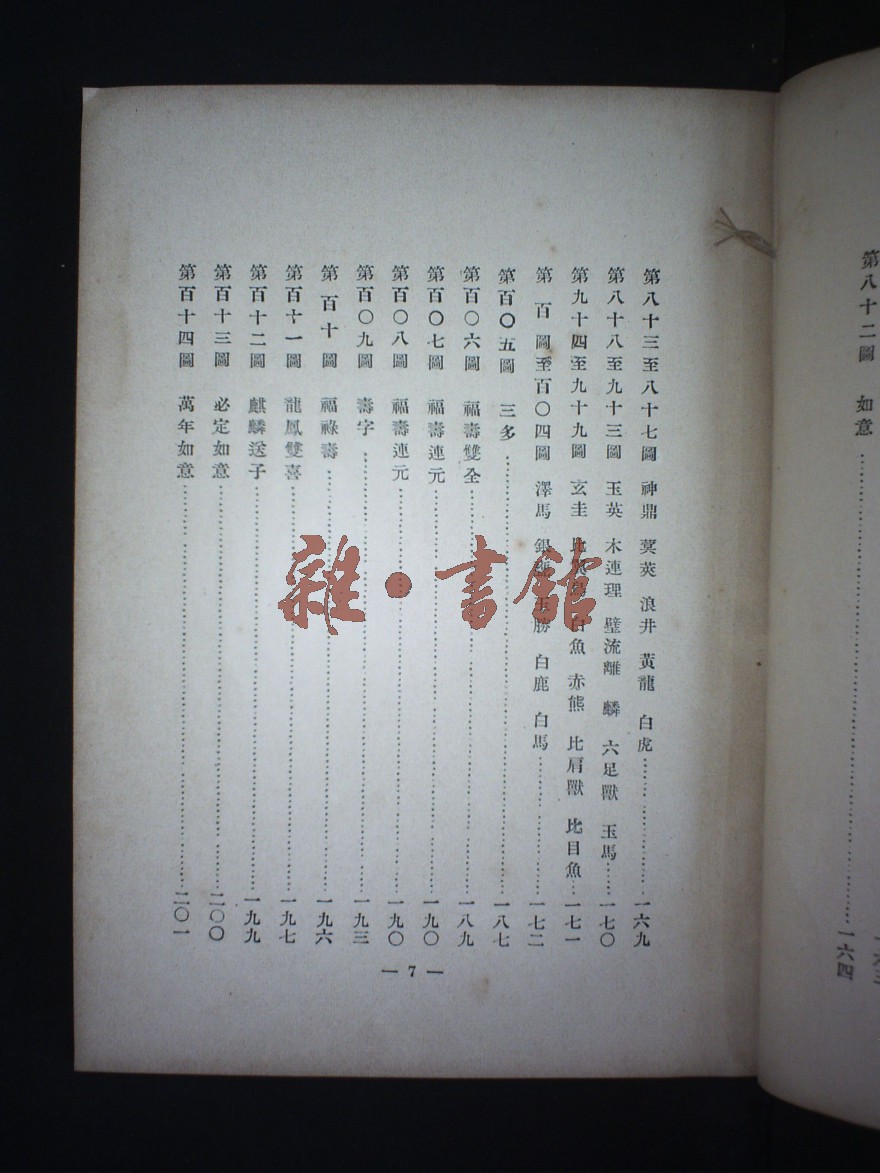 第八十二圖 如意……一六四
第八十三至八十七圖 神鼎 蓂莢 浪井 黃龍 白虎……一六九
第八十八至九十三圖 玉英 木連理 璧流離 麟 六足獸 玉馬……一七〇
第九十四至九十九圖 玄圭 比翼鳥 白魚 赤熊 比肩獸 比目魚……一七一
第百圖至百〇四圖 澤馬 銀甕 玉勝 白鹿 白馬……一七二
第百〇五圖 三多……一八七
第百〇六圖 福壽雙全……一八九
第百〇七圖 福壽連元……一九〇
第百〇八圖 福壽連元……一九〇
第百〇九圖 壽字……一九三
第百十圖 福祿壽……一九六
第百十一圖 龍鳳雙喜……一九七
第百十二圖 麒麟送子……一九九
第百十三圖 必定如意……二〇〇
第百十四圖 萬年如意……二〇一
— 7 —
雜·書館